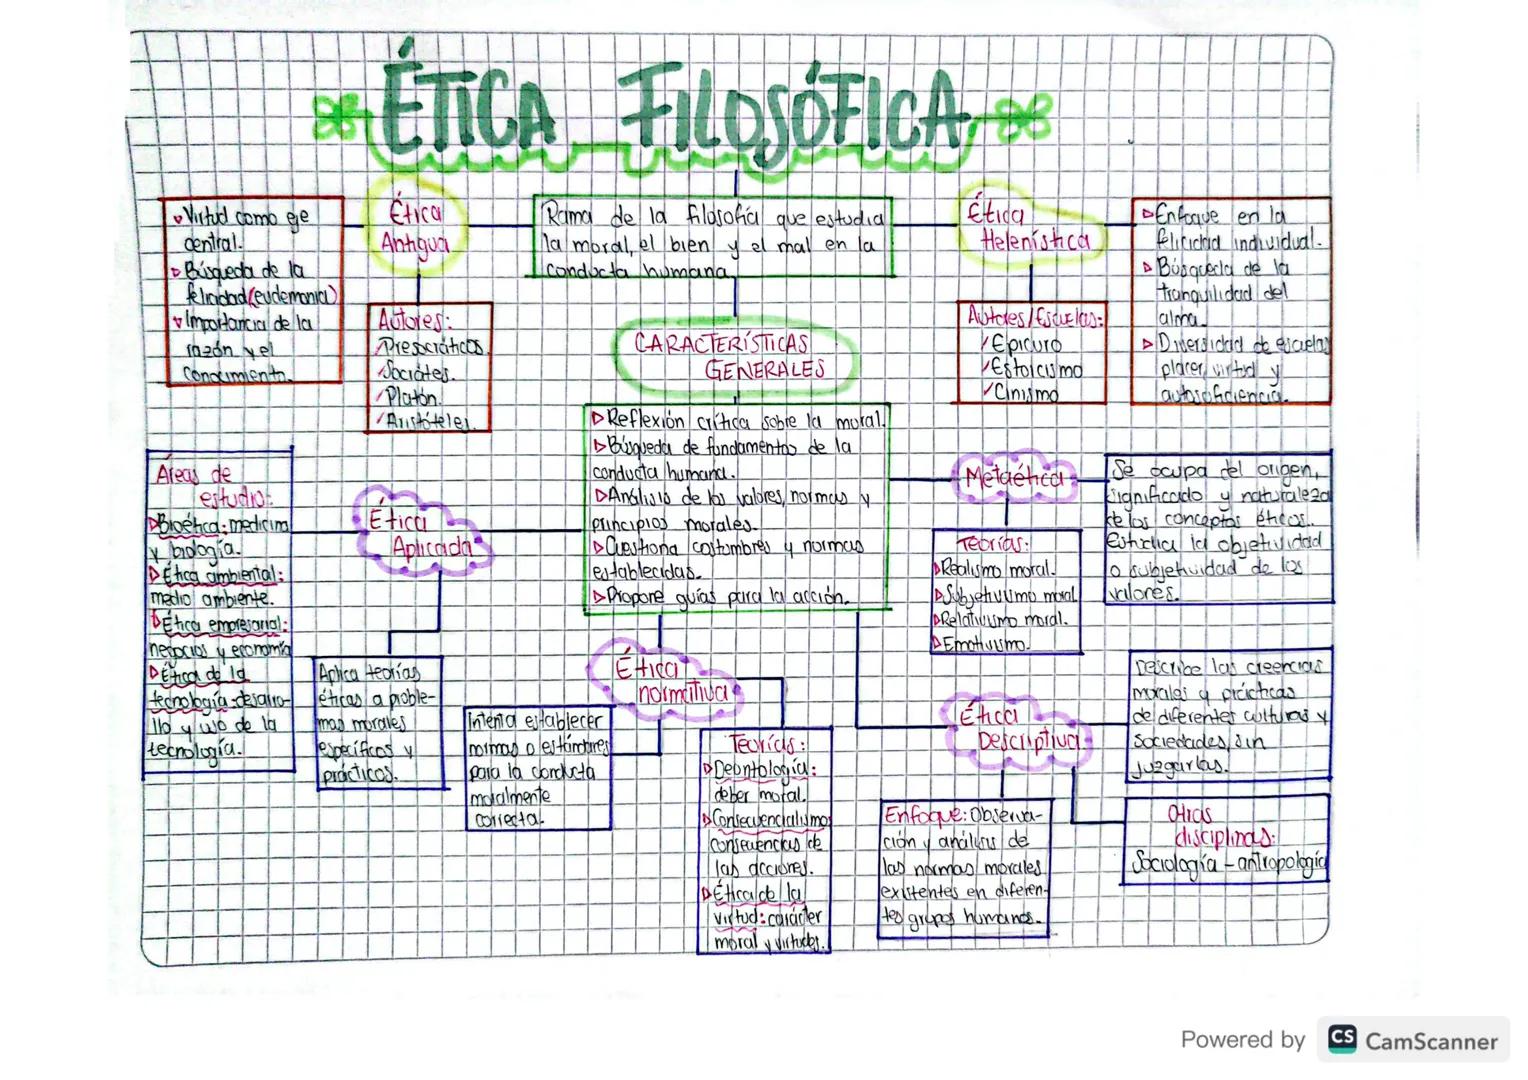 ÉTICA FILOSÓFICA
Virtud como eje
central.
Búsqueda de la
felicidad (eudemonia)
Importancia de la
razón y el
conocimiento.
Ética
Antigua
Autores:
Presocráticos.
Sócrates.
Platón.
Aristóteles.
Rama de la filosofía que estudia
la moral, el bien y el mal en la
conducta humana.
Ética
Helenística
Autores/Escuelas:
Epicuro
Estoicismo
Cinismo
Enfoque en la
felicidad individual.
Búsqueda de la
tranquilidad del
alma.
Diversidad de escuelas
placer, virtud y
autosuficiencia.
CARACTERÍSTICAS
GENERALES
Reflexión crítica sobre la moral.
Búsqueda de fundamentos de la
conducta humana.
Análisis de los valores, normas y
principios morales.
Cuestiona costumbres y normas
establecidas.
Propone guías para la acción.
Áreas de
estudio:
Bioética: medicina
y biología.
Ética ambiental:
medio ambiente.
Ética empresarial:
negocios y economía
Ética de la
tecnología: desarro-
llo y uso de la
tecnología.
Ética
Aplicada
Aplica teorías
éticas a proble-
mas morales
específicos y
prácticos.
Ética
normativa
Intenta establecer
normas o estándares
para la conducta
moralmente
correcta.
Teorías:
Deontología:
deber moral.
Consecuencialismo
consecuencias de
las acciones.
Ética de la
virtud: carácter
moral y virtudes.
Metaética
Se ocupa del origen,
significado y naturaleza
de los conceptos éticos.
Estudia la objetividad
o subjetividad de los
valores.
Teorías:
Realismo moral.
Subjetivismo moral
Relativismo moral.
Emotivismo.
Ética
Descriptiva
Describe las creencias
morales y prácticas
de diferentes culturas y
sociedades, sin
juzgarlas.
Enfoque: Observa-
ción y análisis de
las normas morales
existentes en diferen-
tes grupos humanos.
Otras
disciplinas:
Sociología - antropología
Powered by CS CamScanner